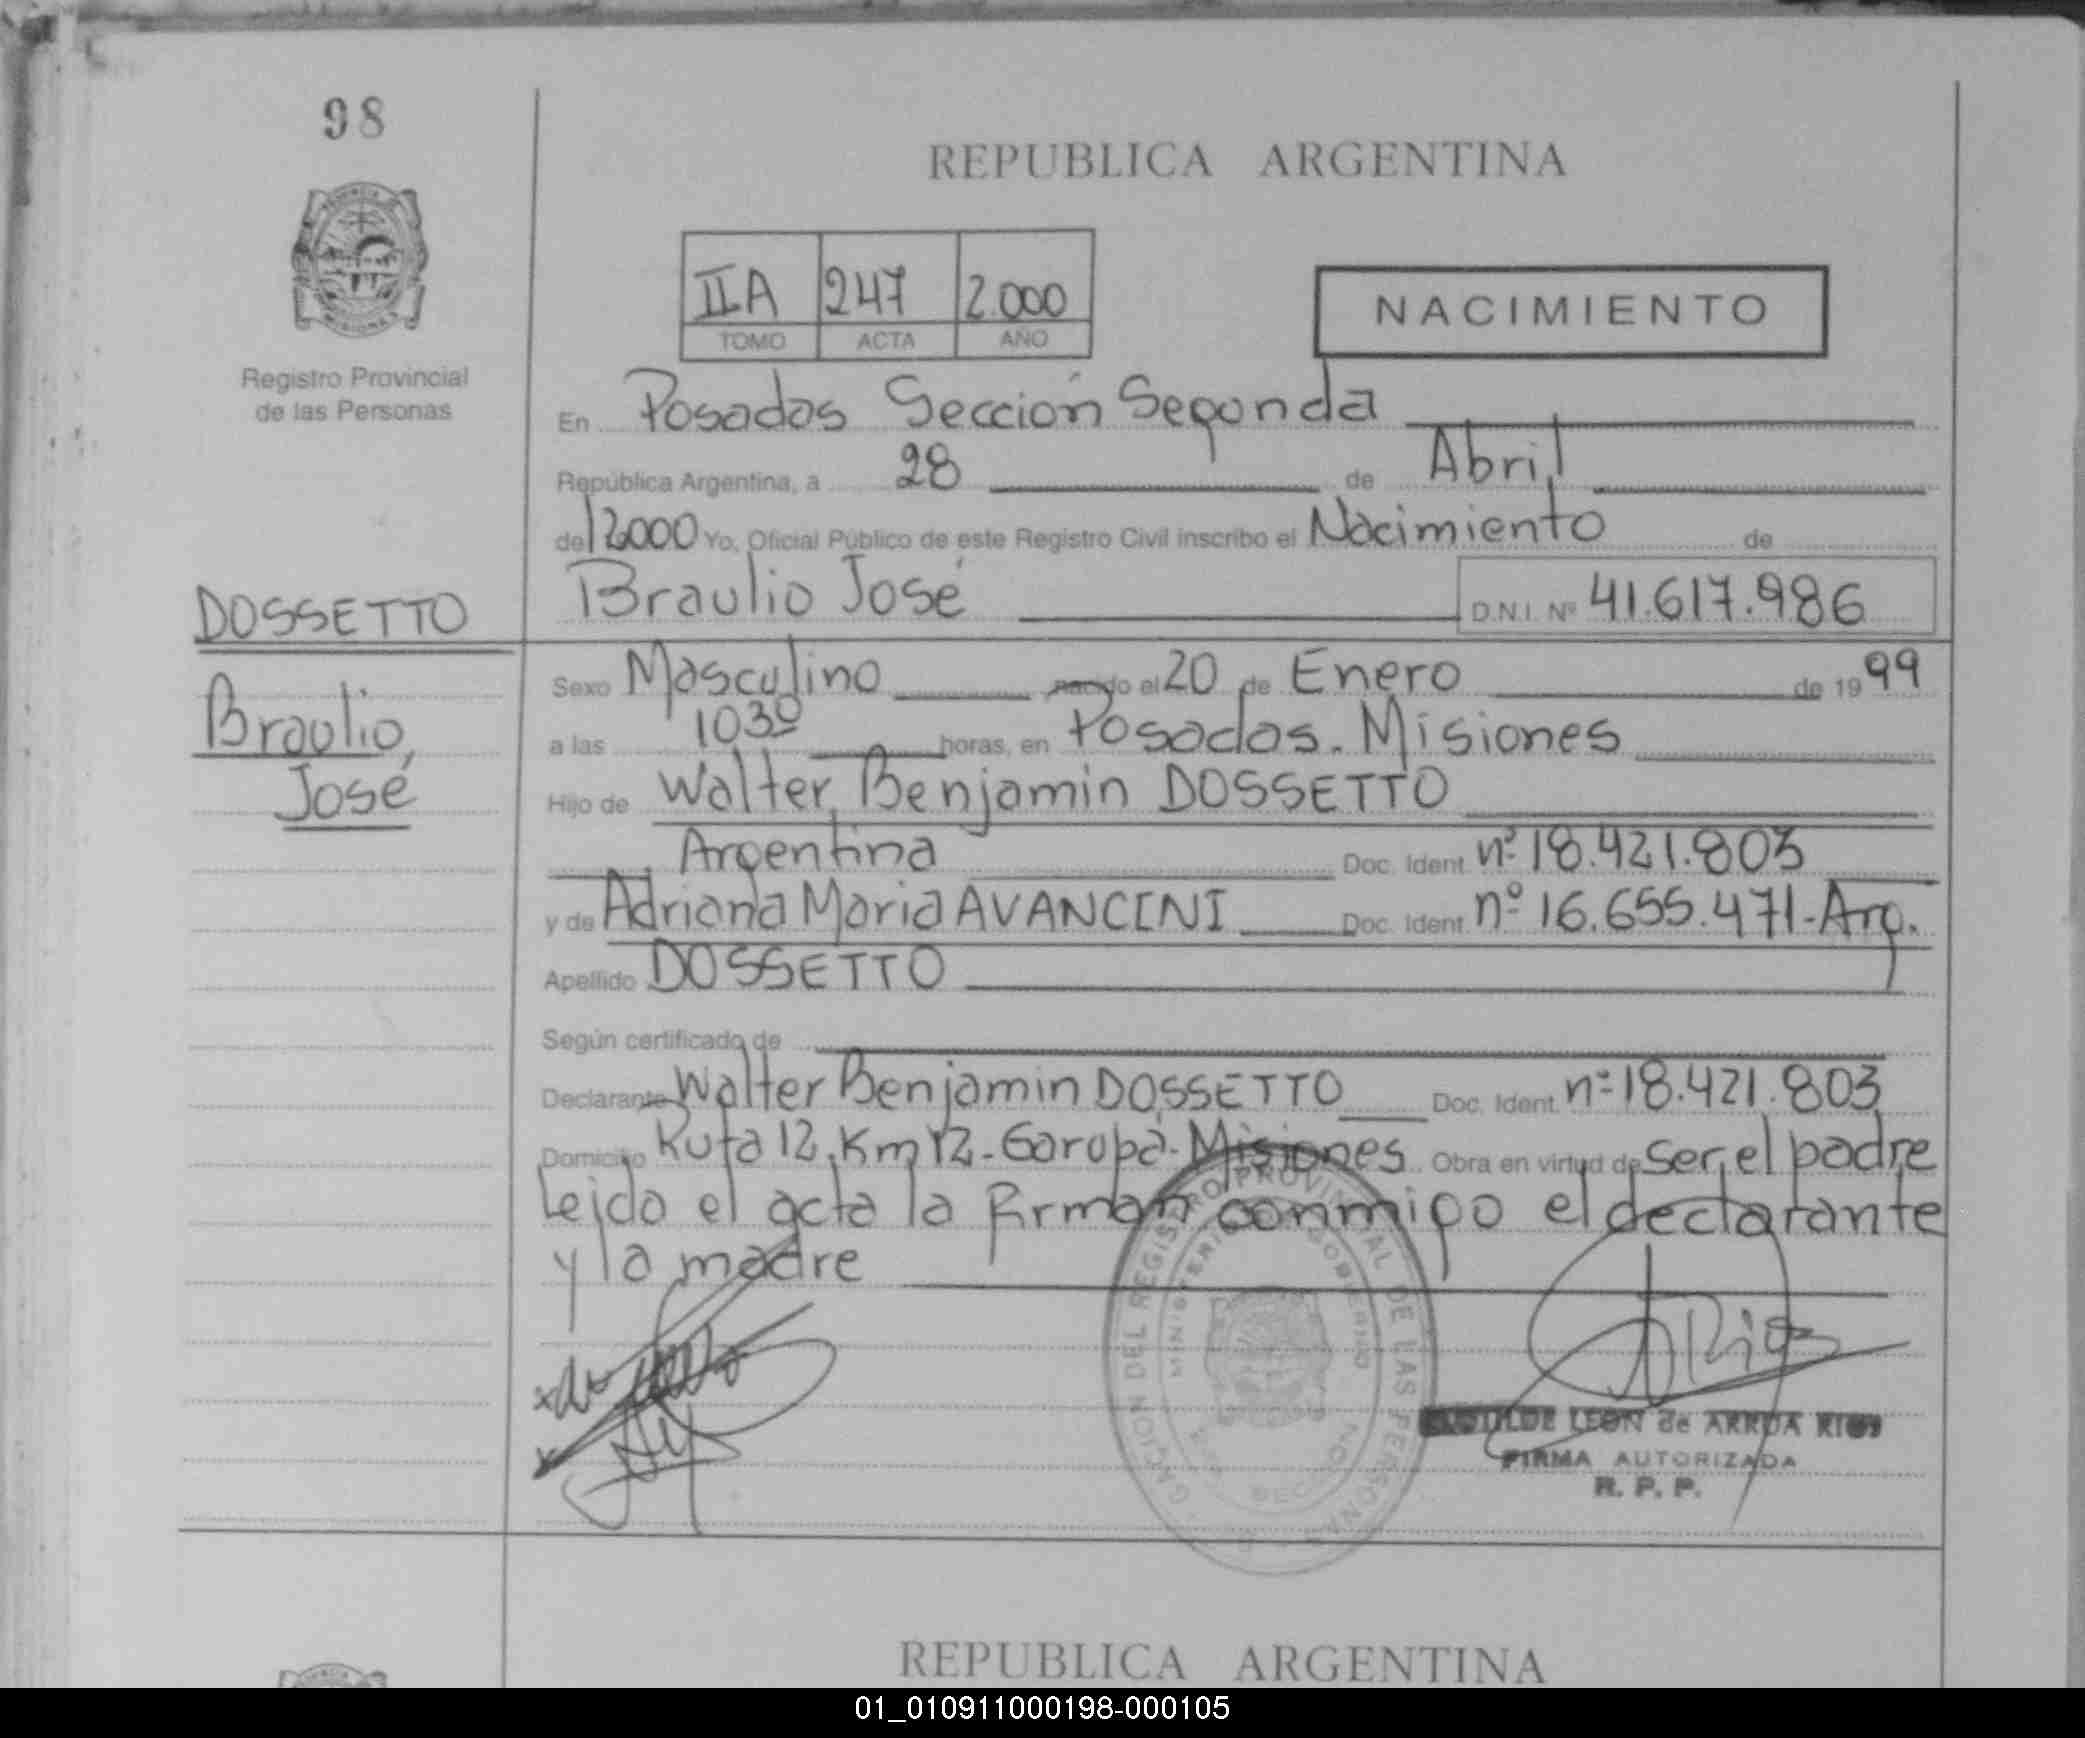 98
REPUBLICA ARGENTINA
PROVINCIA
MISIONES
Registro Provincial
de las Personas
IIA 247 2.000
TOMO ACTA AÑO
NACIMIENTO
En Posadas Sección Segunda
República Argentina, a 28 de Abril
de 2000 Yo, Oficial Público de este Registro Civil inscribo el Nacimiento de
Braulio José D.N.I. Nº 41.617.986
DOSSETTO
Braulio,
José
Sexo Masculino nacido el 20 de Enero de 1999
a las 1030 horas, en Posadas. Misiones
Hijo de Walter Benjamin DOSSETTO
Argentina Doc. Ident. nº 18.421.803
y de Adriana Maria AVANCINI Doc. Ident. nº 16.655.471-Arg.
Apellido DOSSETTO
Según certificado de
Declarante Walter Benjamin DOSSETTO Doc. Ident. nº 18.421.803
Domicilio Ruta 12. Km 12-Garupá-Misiones Obra en virtud de Ser el padre
Leido el acta la firman conmigo el declarante
y la madre
DEL REGISTRO PROVINCIAL DE LAS PERSONAS
MINISTERIO GOBIERNO
ARios
LEON de ARRUA RIOS
FIRMA AUTORIZADA
R. P. P.
REPUBLICA ARGENTINA
01_010911000198-000105